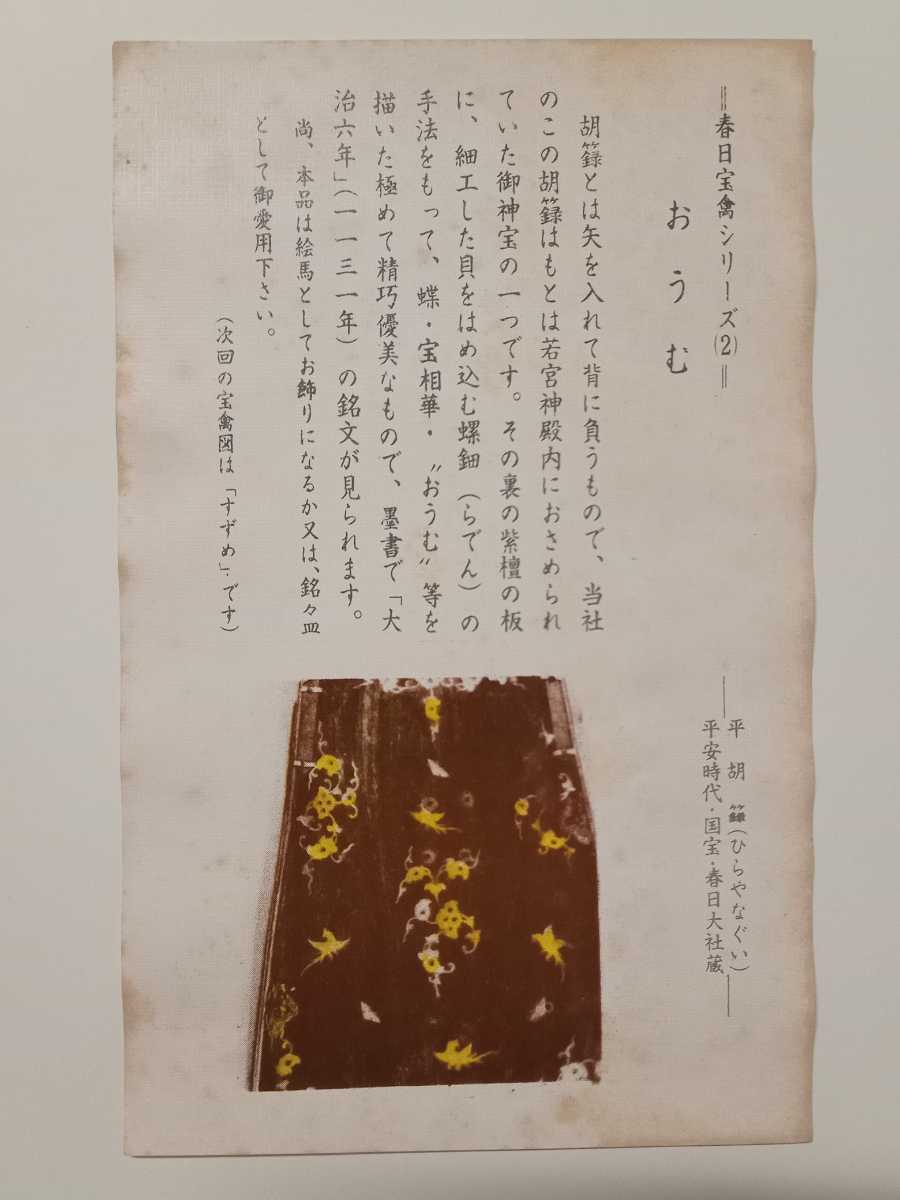 ＝春日宝禽シリーズ(2)＝
おうむ
胡籙とは矢を入れて背に負うもので、当社
のこの胡籙はもとは若宮神殿内におさめられ
ていた御神宝の一つです。その裏の紫檀の板
に、細工した貝をはめ込む螺鈿（らでん）の
手法をもって、蝶・宝相華・〝おうむ〟等を
描いた極めて精巧優美なもので、墨書で「大
治六年」（一一三一年）の銘文が見られます。
尚、本品は絵馬としてお飾りになるか又は、銘々皿
として御愛用下さい。
（次回の宝禽図は「すずめ」です）
平胡籙（ひらやなぐい）
平安時代・国宝・春日大社蔵